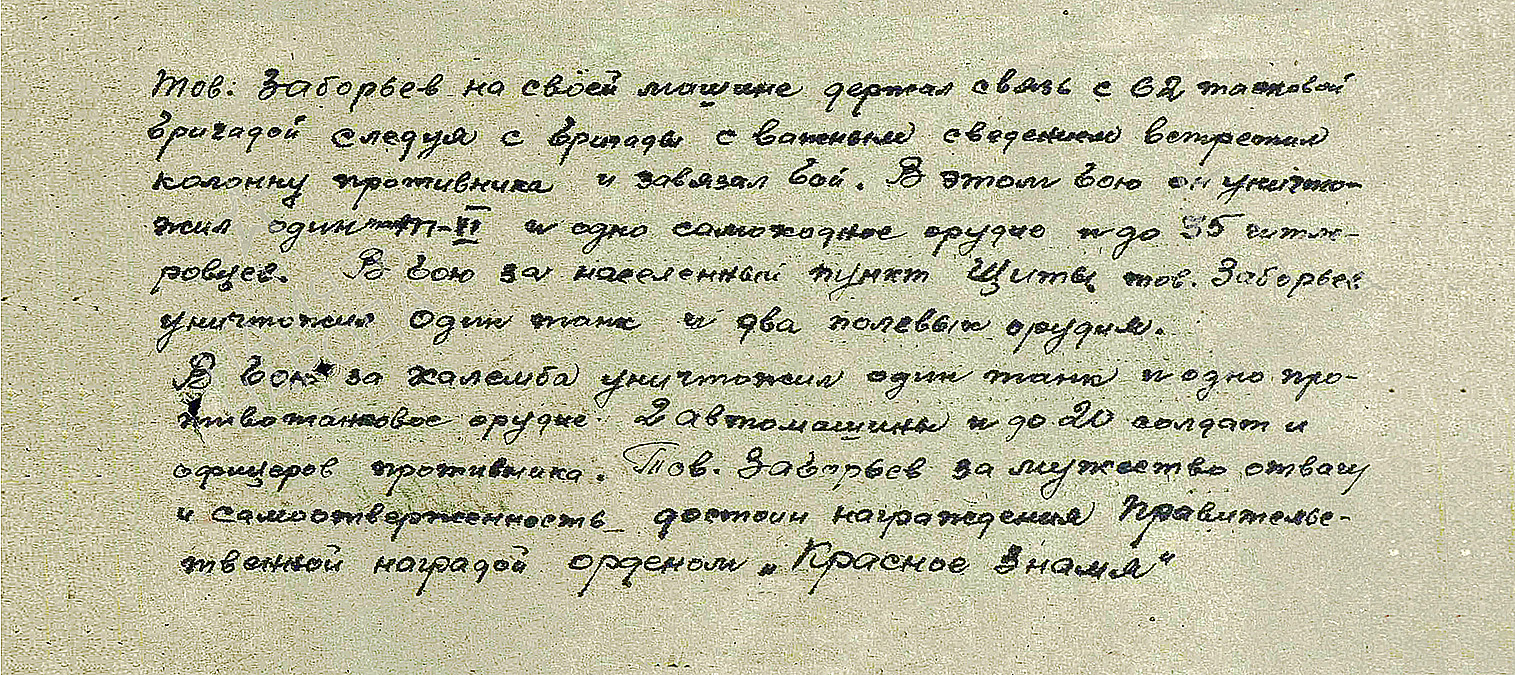 Тов. Заборьев на своей машине держал связь с 62 танковой
бригадой следуя с бригады с важным сведением встретил
колонну противника и завязал бой. В этом бою он уничто-
жил один Т-II и одно самоходное орудие и до 35 гитле-
ровцев. В бою за населенный пункт Щиты тов. Заборьев
уничтожил один танк и два полевых орудия.
В бою за Халемба уничтожил один танк и одно про-
тивотанковое орудие 2 автомашины и до 20 солдат и
офицеров противника. Тов. Заборьев за мужество отвагу
и самоотверженность достоин награждения Правительс-
твенной наградой орденом „Красное Знамя“